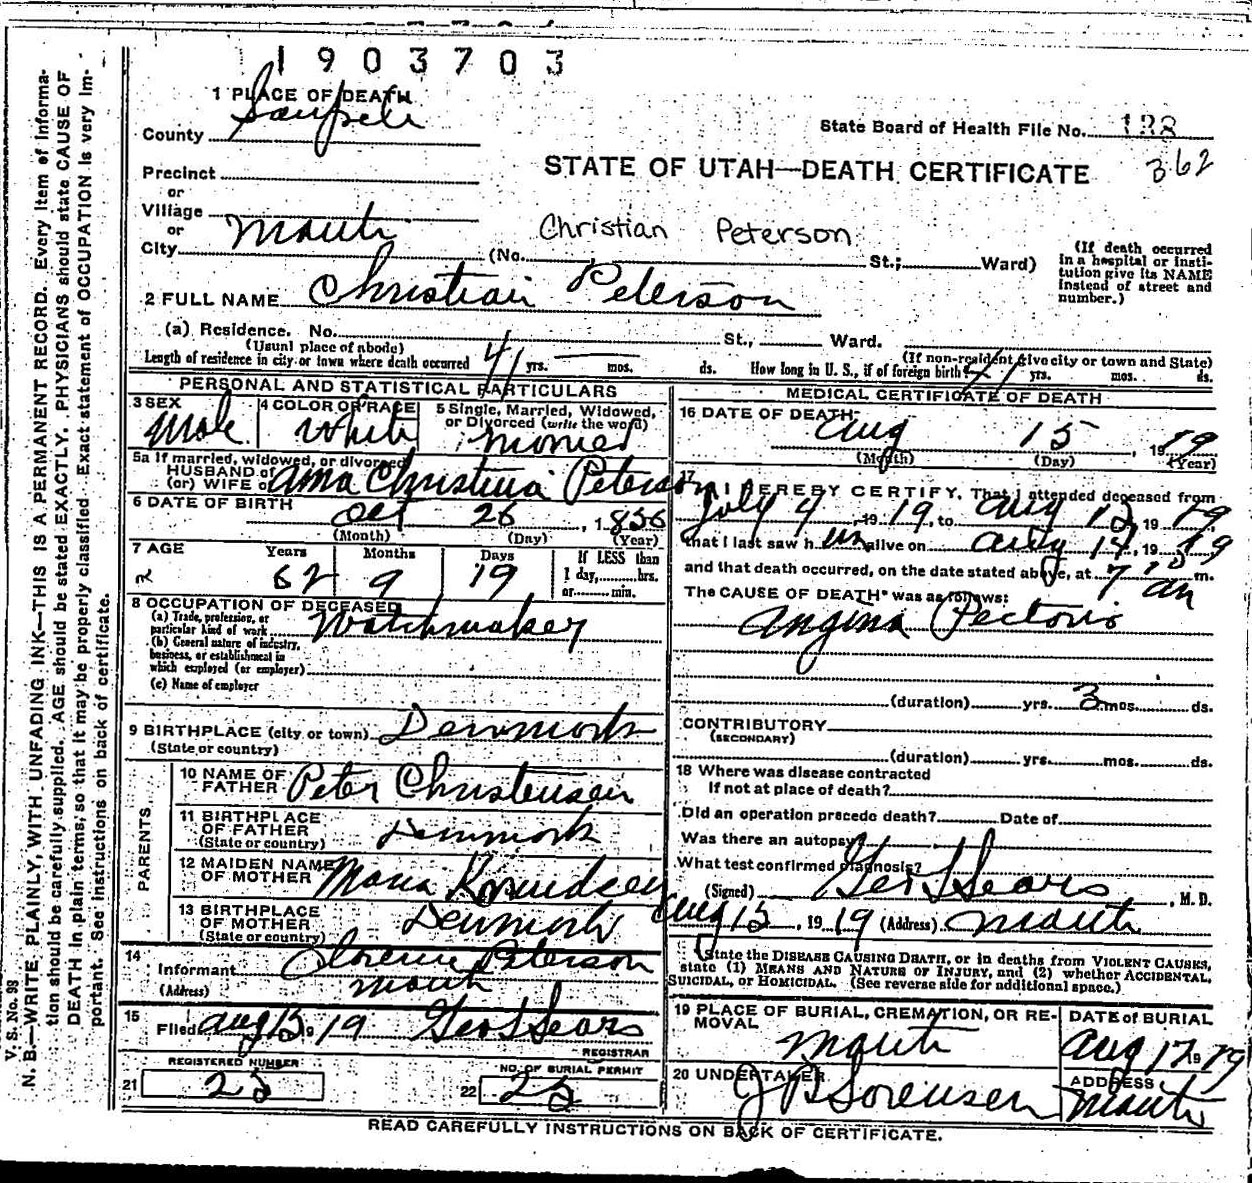 1903703
1 PLACE OF DEATH
County Sanpete
State Board of Health File No. 138
362
STATE OF UTAH—DEATH CERTIFICATE
Precinct
or
Village
or
City Manti (No. St.; Ward)
Christian Peterson
(If death occurred in a hospital or institution give its NAME instead of street and number.)
2 FULL NAME Christian Peterson
(a) Residence. No. St., Ward.
(Usual place of abode) (If non-resident give city or town and State)
Length of residence in city or town where death occurred 41 yrs. mos. ds. How long in U. S., if of foreign birth? 41 yrs. mos. ds.
PERSONAL AND STATISTICAL PARTICULARS
3 SEX Male
4 COLOR OR RACE White
5 Single, Married, Widowed, or Divorced (write the word) Married
5a If married, widowed, or divorced
HUSBAND of
(or) WIFE of Anna Christina Peterson
6 DATE OF BIRTH
Oct 26, 1856
(Month) (Day) (Year)
7 AGE Years Months Days If LESS than
62 9 19 1 day,......hrs.
or......min.
8 OCCUPATION OF DECEASED
(a) Trade, profession, or particular kind of work Watchmaker
(b) General nature of industry, business, or establishment in which employed (or employer)
(c) Name of employer
9 BIRTHPLACE (city or town) Denmark
(State or country)
PARENTS
10 NAME OF FATHER Peter Christensen
11 BIRTHPLACE OF FATHER Denmark
(State or country)
12 MAIDEN NAME OF MOTHER Maria
13 BIRTHPLACE OF MOTHER Denmark
(State or country)
14
Informant Clarence Peterson
(Address) Manti
15
Filed Aug 15 1919 Geo L Sears
REGISTRAR
REGISTERED NUMBER
21 25
NO. OF BURIAL PERMIT
22 25
MEDICAL CERTIFICATE OF DEATH
16 DATE OF DEATH
Aug 15, 1919
(Month) (Day) (Year)
17 I HEREBY CERTIFY, That I attended deceased from
July 4, 1919, to Aug 12, 1919,
that I last saw him alive on Aug 14, 1919
and that death occurred, on the date stated above, at 7 am m.
The CAUSE OF DEATH* was as follows:
Angina Pectoris
(duration) yrs. 3 mos. ds.
CONTRIBUTORY
(SECONDARY)
(duration) yrs. mos. ds.
18 Where was disease contracted
If not at place of death?
Did an operation precede death? Date of
Was there an autopsy?
What test confirmed diagnosis?
(Signed) Geo L Sears, M. D.
Aug 15, 1919 (Address) Manti
*State the DISEASE CAUSING DEATH, or in deaths from VIOLENT CAUSES, state (1) MEANS AND NATURE OF INJURY, and (2) whether ACCIDENTAL, SUICIDAL, or HOMICIDAL. (See reverse side for additional space.)
19 PLACE OF BURIAL, CREMATION, OR REMOVAL
Manti
DATE of BURIAL
Aug 17 1919
20 UNDERTAKER
J P Sorensen
ADDRESS
Manti
READ CAREFULLY INSTRUCTIONS ON BACK OF CERTIFICATE.
V. S. No. 98
N. B.—WRITE PLAINLY, WITH UNFADING INK—THIS IS A PERMANENT RECORD. Every item of information should be carefully supplied. AGE should be stated EXACTLY. PHYSICIANS should state CAUSE OF DEATH in plain terms, so that it may be properly classified. Exact statement of OCCUPATION is very important. See instructions on back of certificate.